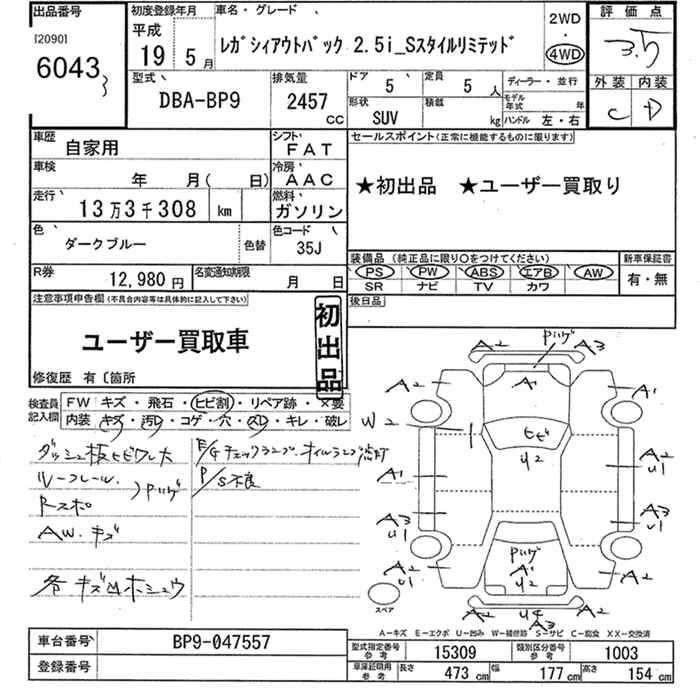 出品番号 初度登録年月 車名・グレード 2WD 評価点
120901 平成 ・ 3.5
6043 19 5月 レガシィアウトバック 2.5i_Sスタイルリミテッド 4WD
型式 排気量 ドア 5 定員 5人 ディーラー・並行 外装 内装
DBA-BP9 2457 CC 形状 SUV 積載 kg モデル年式 年 C D
ハンドル 左・右
車歴 自家用 シフト FAT セールスポイント(正常に機能するものに限ります)
車検 年 月( 日) 冷房 AAC ★初出品 ★ユーザー買取り
走行 13万3千308 km 燃料 ガソリン
色 ダークブルー 色替 色コード 35J
装備品 (純正品に限り〇をつけてください) 新車保証書
R券 12,980円 名変通知期限 月 日 PS PW ABS エアB AW 有・無
SR ナビ TV カワ
注意事項申告欄 (不具合内容等は具体的に記入して下さい) 後日品
ユーザー買取車 初出品
修復歴 有〔箇所
検査員記入欄 FW キズ・飛石・ヒビ割・リペア跡・×要
内装 キズ・汚れ・コゲ・穴・スレ・キレ・破レ
ダッシュ板ヒビワレ大 E/Gチェックランプ、オイルランプ点灯
ルーフレール P/S不良
Rスポ )Pハゲ
AW.キズ
各キズ凹ホシュウ
Pハゲ
A2 A3
A2 A1 A1
W2 ヒビ
U2 A2
U1
A1 A3
A3 U1
U1
Pハゲ
A2 A1 A2
U1 U2
A2 U4 A2
A3
スペア
A-キズ E-エクボ U-凹み W-補修跡 S-サビ C-腐食 XX-交換済
車台番号 BP9-047557 型式指定番号 参考 15309 類別区分番号 参考 1003
登録番号 車庫証明用 参考 長さ 473 cm 幅 177 cm 高さ 154 cm